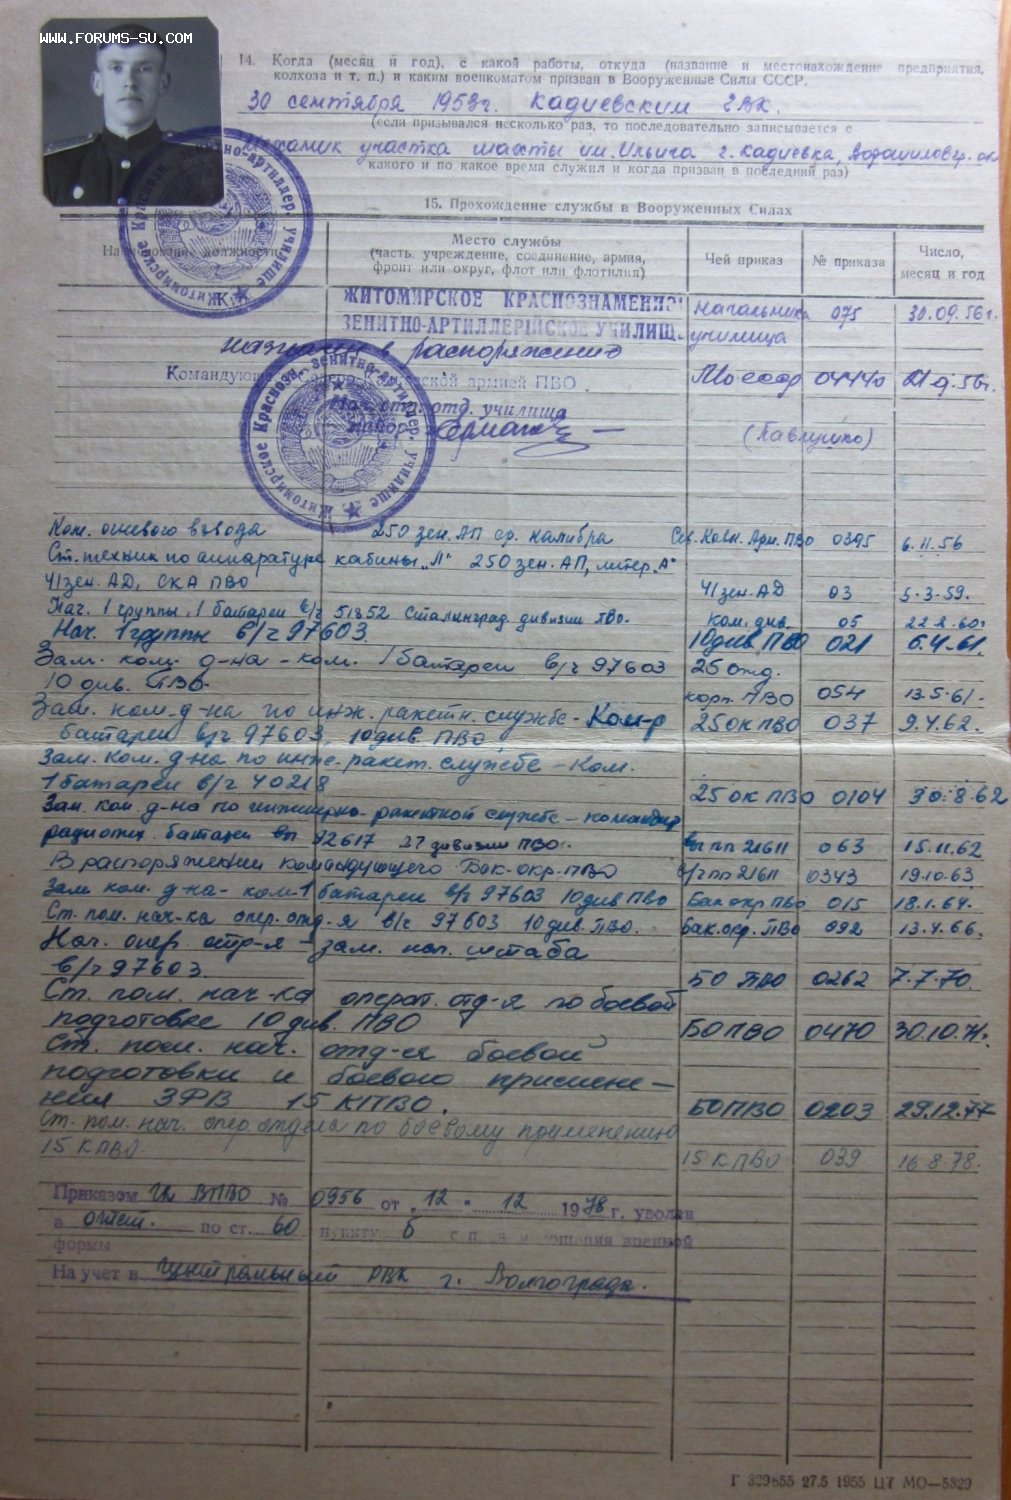 WWW.FORUMS-SU.COM
14. Когда (месяц и год), с какой работы, откуда (название и местонахождение предприятия,
колхоза и т. п.) и каким военкоматом призван в Вооруженные Силы СССР.
30 сентября 1953г. Кадиевским ГВК.
(если призывался несколько раз, то последовательно записывается с
Механик участка шахты им. Ильича г. Кадиевка, Ворошиловгр. обл
какого и по какое время служил и когда призван в последний раз)
15. Прохождение службы в Вооруженных Силах
Наименование должности
Место службы
(часть, учреждение, соединение, армия,
фронт или округ, флот или флотилия)
Чей приказ
№ приказа
Число,
месяц и год
Житомирское Краснозн. зенитно-артиллер. училище
ЖИТОМИРСКОЕ КРАСНОЗНАМЕННОЕ начальника 075 30.09.56г.
ЗЕНИТНО-АРТИЛЛЕРИЙСКОЕ УЧИЛИЩ. училища
назначен в распоряжение
Командующ Северо Кавказской армией ПВО. МО СССР 04440 21.9.56г.
Нач. стр. отд. училища
майор (Павленко)
Житомирское Краснозн. зенитно-артиллер. училище
Ком. огневого взвода 250 зен. АП ср. калибра Сев. Кавк. Арм. ПВО 0395 6.11.56
Ст. техник по аппаратуре кабины „П" 250 зен. АП, литер „А"
41 зен. АД, СКА ПВО 41 зен. АД 03 5.3.59.
Нач. 1 группы, 1 батареи в/ч 51852 Сталинград. дивизии ПВО. ком. див. 05 22.2.60г
Нач. 1 группы в/ч 97603 10 див. ПВО 021 6.4.61.
Зам. ком. д-на - ком. 1 батареи в/ч 97603 25 отд.
10 див. ПВО. корп. ПВО 054 13.5.61г.
Зам. ком. д-на по инж. ракетн. службе - Ком-р 25 ОК ПВО 037 9.4.62.
батареи в/ч 97603, 10 див ПВО
Зам. ком. д-на по инже. ракет. службе - Ком.
1 батареи в/ч 40218 25 ОК ПВО 0104 30.8.62
Зам. ком д-на по инженерно-ракетной службе - командир
радиотех. батареи вч 92617 27 дивизии ПВО. вч пп 21611 063 15.11.62
В распоряжении командующего Бак. окр. ПВО в/ч пп 21611 0343 19.10.63
Зам ком. д-на - ком 1 батареи в/ч 97603 10 див ПВО Бак окр ПВО 015 18.1.64.
Ст. пом. нач-ка опер. отд-я в/ч 97603 10 див. ПВО. Бак. окр. ПВО 092 13.4.66.
Нач. опер. отд-я - зам. нач. штаба
в/ч 97603. БО ПВО 0262 7.7.70.
Ст. пом. нач-ка операт. отд-я по боевой
подготовке 10 див. ПВО БОПВО 0470 30.10.71.
Ст. пом. нач. отд-я боевой
подготовки и боевого примене-
ния ЗРВ 15 КПВО. БОПВО 0203 29.12.77
Ст. пом. нач. опер. отдела по боевому применению
15 КПВО. 15 КПВО 039 16.8.78.
Приказом ГК ВПВО № 0956 от „12" 12 1978 г. уволен
в отст. по ст. 60 пункту б с правом ношения военной
формы
На учет в Центральный РВК г. Волгограда.
Г 329655 27.5 1955 ЦТ МО—5329